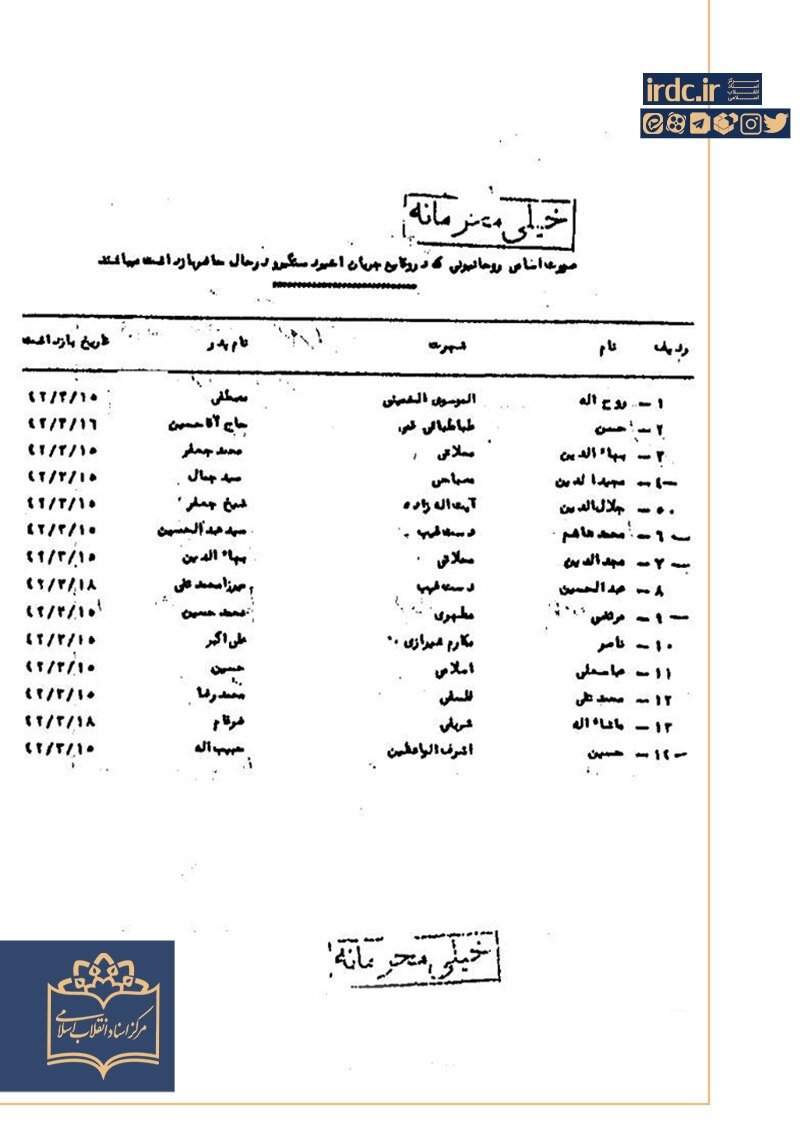 irdc.ir
مرکز اسناد انقلاب اسلامی
خیلی محرمانه
صورت اسامی روحانیونی که در وقایع جریان اخیر دستگیر و در حال حاضر بازداشت میباشند
ردیف نام شهرت نام پدر تاریخ بازداشت
۱ – روح اله الموسوی الخمینی مصطفی ۴۲/۳/۱۵
۲ – حسن طباطبائی قمی حاج آقا حسین ۴۲/۳/۱۶
۳ – بهاء الدین محلاتی محمد جعفر ۴۲/۳/۱۵
۴ – مجدالدین مصباحی سید جمال ۴۲/۳/۱۵
۵ – جلال الدین آیت اله زاده شیخ جعفر ۴۲/۳/۱۵
۶ – محمد هاشم دست غیب سید عبدالحسین ۴۲/۳/۱۵
۷ – مجدالدین محلاتی بهاء الدین ۴۲/۳/۱۵
۸ – عبدالحسین دست غیب میرزا محمد تقی ۴۲/۳/۱۸
۹ – مرتضی مطهری محمد حسین ۴۲/۳/۱۵
۱۰ – ناصر مکارم شیرازی علی اکبر ۴۲/۳/۱۵
۱۱ – عباسعلی اسلامی حسین ۴۲/۳/۱۵
۱۲ – محمد تقی فلسفی محمد رضا ۴۲/۳/۱۵
۱۳ – ماشاء اله شریفی ۴۲/۳/۱۸
۱۴ – حسین اشرف الواعظین حبیب اله ۴۲/۳/۱۵
خیلی محرمانه
مرکز اسناد انقلاب اسلامی